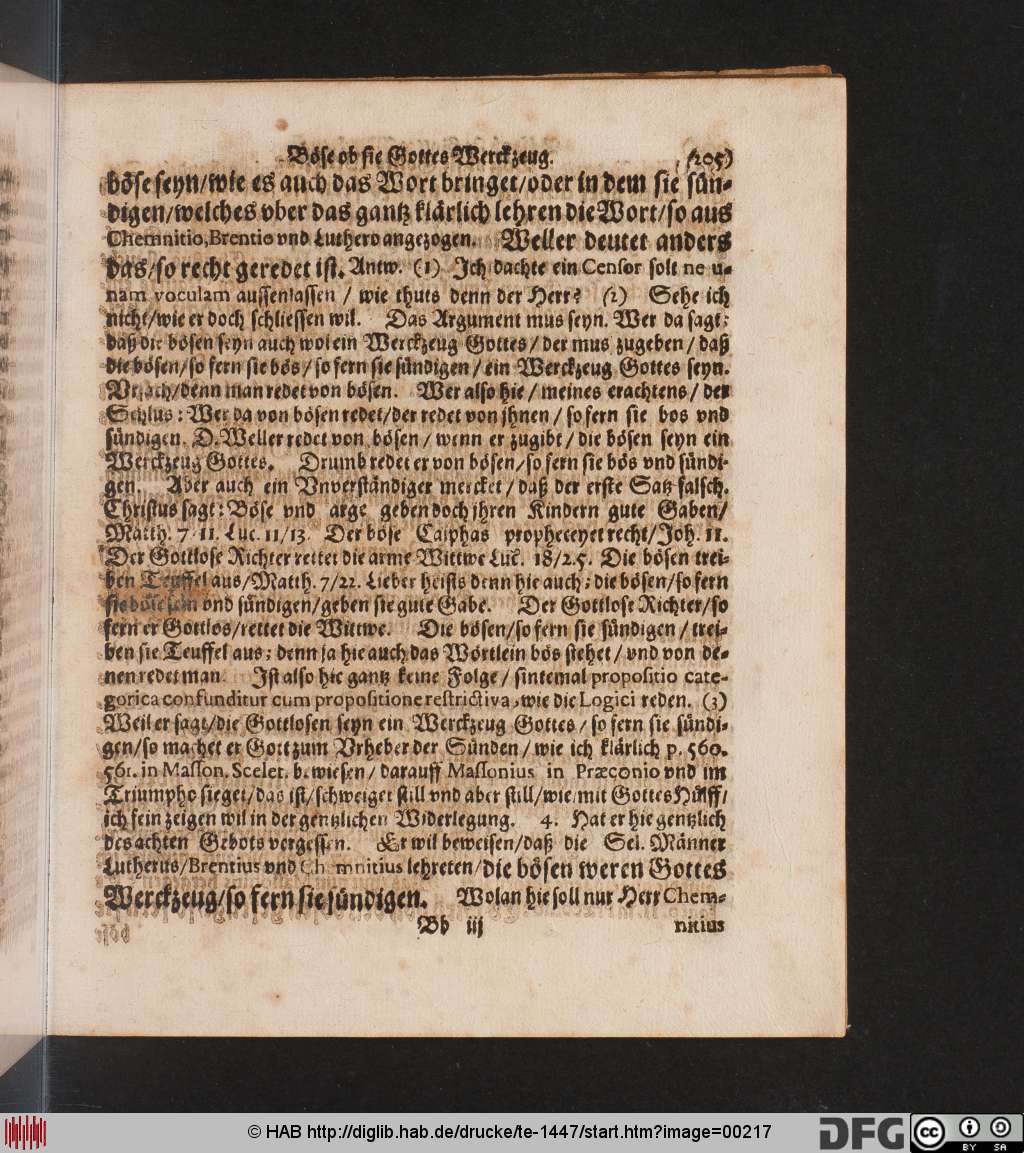 Böse ob sie Gottes Werckzeug. (205)
böse seyn/wie es auch das Wort bringet/oder in dem sie sün-
digen/welches vber das gantz klärlich lehren die Wort/so aus
Chemnitio, Brentio vnd Luthero angezogen. Weller deutet anders
das/so recht geredet ist. Antw. (1) Ich dachte ein Censor solt ne u-
nam voculam aussenlassen / wie thuts denn der Herr? (2) Sehe ich
nicht/wie er doch schliessen wil. Das Argument mus seyn. Wer da sagt:
daß die bösen seyn auch wol ein Werckzeug Gottes/ der mus zugeben/ daß
die bösen/so fern sie bös/ so fern sie sündigen/ ein Werckzeug Gottes seyn.
Vrsach/denn man redet von bösen. Wer also hie/ meines erachtens/ der
Schlus: Wer da von bösen redet/der redet von jhnen/ so fern sie bös vnd
sündigen. D. Weller redet von bösen/ wenn er zugibt/ die bösen seyn ein
Werckzeug Gottes. Drumb redet er von bösen/so fern sie bös vnd sündi-
gen. Aber auch ein Vnverständiger mercket/ daß der erste Satz falsch.
Christus sagt: Böse vnd arge geben doch jhren Kindern gute Gaben/
Matth. 7. 11. Luc. 11/13. Der böse Caiphas propheceyet recht/Joh. 11.
Der Gottlose Richter rettet die arme Wittwe Luc. 18/2.5. Die bösen trei-
ben Teuffel aus/Matth. 7/22. Lieber heists denn hie auch: die bösen/so fern
sie böse sein vnd sündigen/geben sie gute Gabe. Der Gottlose Richter/so
fern er Gottlos/rettet die Wittwe. Die bösen/so fern sie sündigen/ trei-
ben sie Teuffel aus: denn ja hie auch das Wörtlein bös stehet/ vnd von de-
nen redet man. Ist also hie gantz keine Folge/ sintemal propositio cate-
gorica confunditur cum propositione restrictiva, wie die Logici reden. (3)
Weil er sagt/die Gottlosen seyn ein Werckzeug Gottes/ so fern sie sündi-
gen/so machet er Gott zum Vrheber der Sünden/ wie ich klärlich p. 560.
561. in Masson. Sceler. bewiesen/ darauff Massonius in Præconio vnd im
Triumpho sieget/das ist/schweiget still vnd aber still/wie/mit Gottes Hülff/
ich fein zeigen wil in der gentzlichen Widerlegung. 4. Hat er hie gentzlich
des achten Gebots vergessen. Er wil beweisen/daß die Sel. Männer
Lutherus/Brentius vnd Chemnitius lehreten/die bösen weren Gottes
Werckzeug/so fern sie sündigen. Wolan hie soll nur Herr Chem-
Bb iij nitius
© HAB http://diglib.hab.de/drucke/te-1447/start.htm?image=00217
DFG cc BY SA